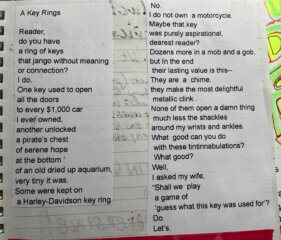 A Key Rings
Reader,
do you have
a ring of keys
that jango without meaning
or connection?
I do.
One key used to open
all the doors
to every $1,000 car
I ever owned,
another unlocked
a pirate's chest
of serene hope
at the bottom '
of an old dried up aquarium,
very tiny it was.
Some were kept on
a Harley-Davidson key ring
No.
I do not own a motorcycle.
Maybe that key
was purely aspirational,
dearest reader?
Dozens more in a mob and a gob,
but In the end
their lasting value is this--
They are a chime.
they make the most delightful
metallic clink .
None of them open a damn thing
much less the shackles
around my wrists and ankles.
What good can you do
with these tintinnabulations?
What good?
Well,
I asked my wife,
"Shall we play
a game of
'guess what this key was used for'?
Do.
Let's.